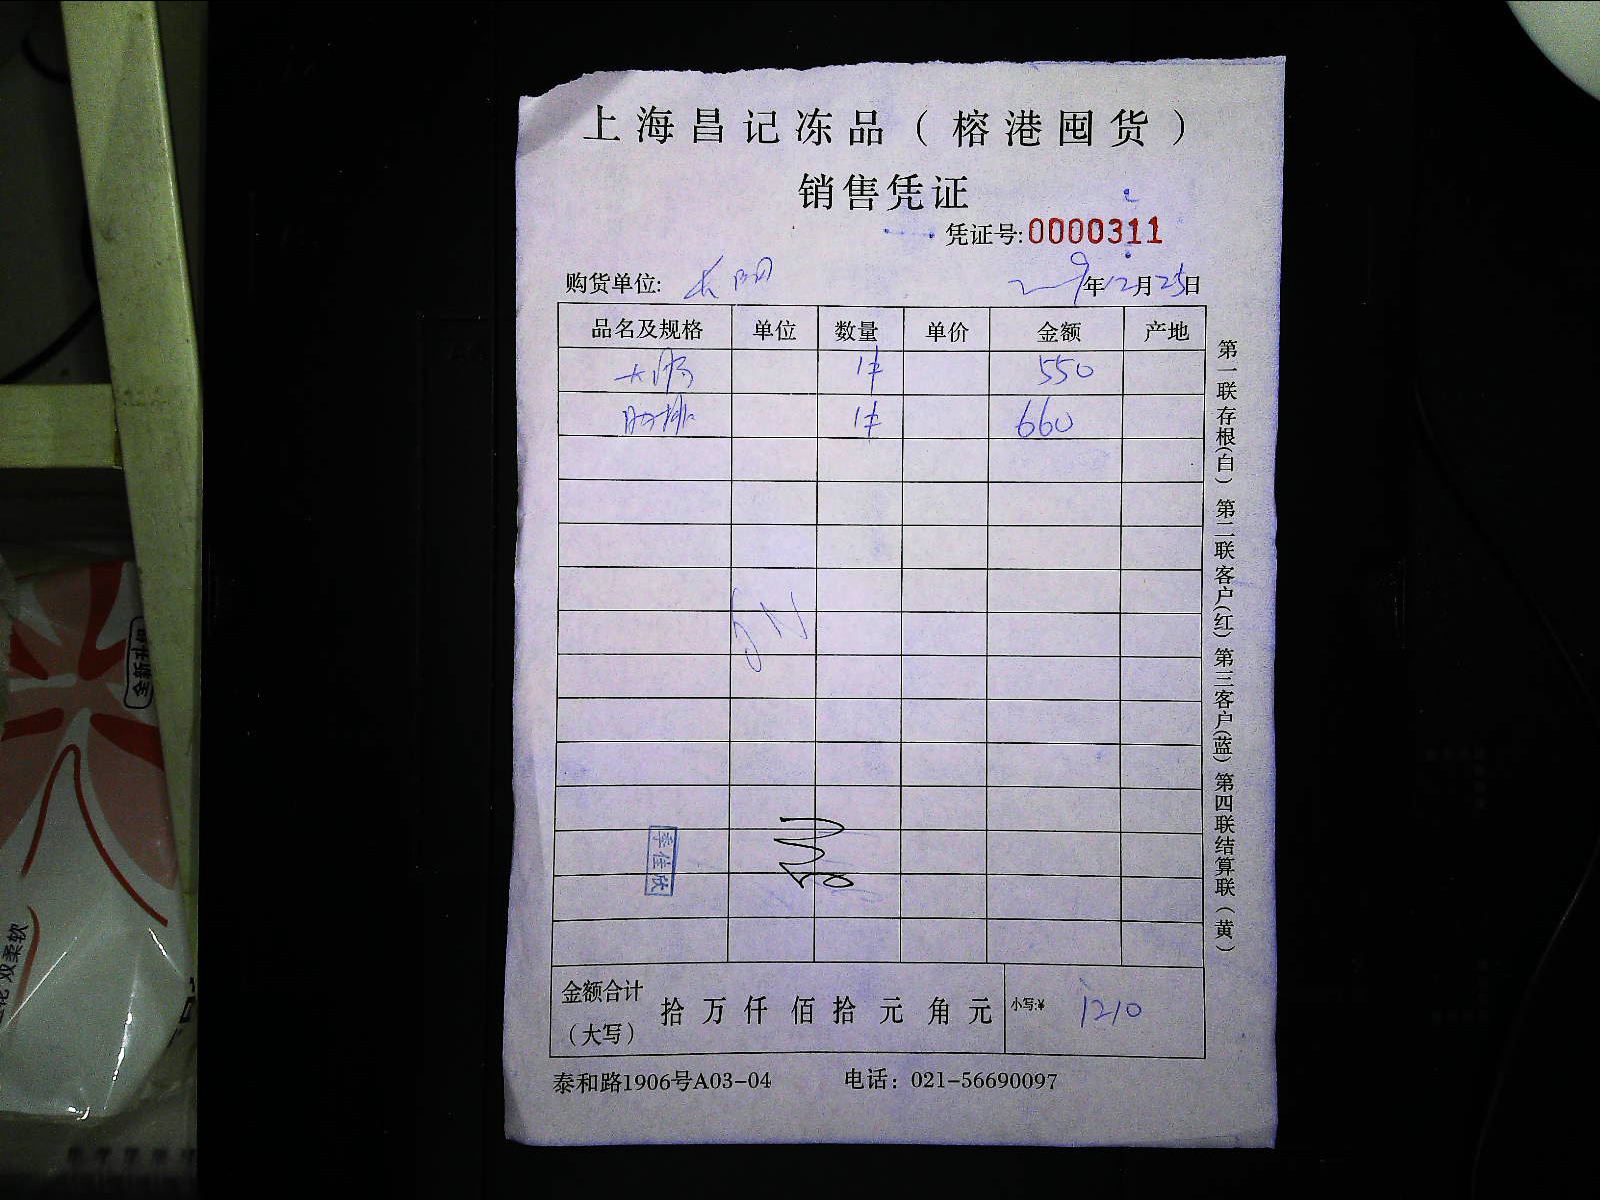 上海昌记冻品（榕港囤货）
销售凭证
凭证号:0000311
购货单位:
年12月25日
品名及规格 单位 数量 单价 金额 产地
大肠 1件 550
肋排 1件 660
李佳欣
金额合计（大写） 拾 万 仟 佰 拾 元 角 元 小写:¥ 1210
泰和路1906号A03-04 电话：021-56690097
第一联存根(白) 第二联客户(红) 第三客户(蓝) 第四联结算联（黄）
双柔软